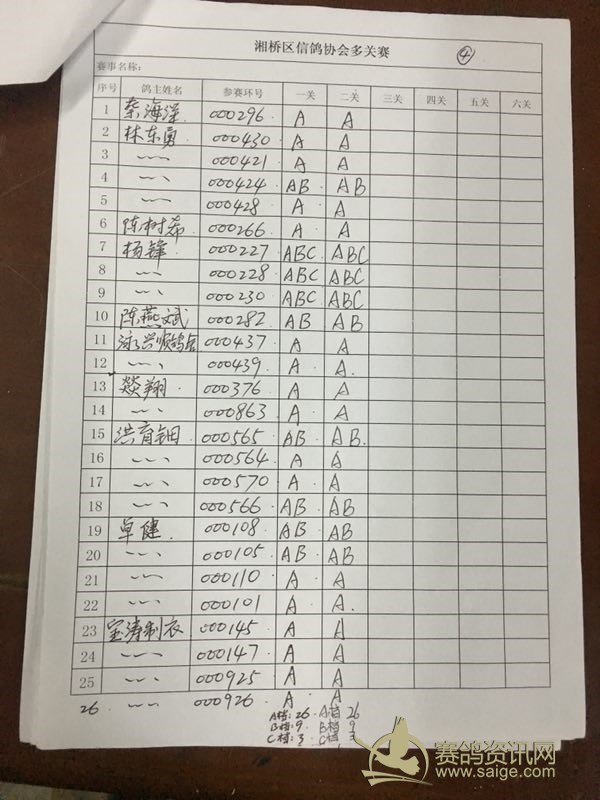 湘桥区信鸽协会多关赛 ④
赛事名称:
序号 鸽主姓名 参赛环号 一关 二关 三关 四关 五关 六关
1 秦海洋 000296 A A
2 林东勇 000430 A A
3 〃 000421 A A
4 〃 000424 AB AB
5 〃 000428 A A
6 陈树希 000266 A A
7 杨锋 000227 ABC ABC
8 〃 000228 ABC ABC
9 〃 000230 ABC ABC
10 陈燕斌 000282 AB AB
11 000437 A A
12 〃 000439 A A.
13 燚翔 000376 A A
14 〃 000863 A A
15 洪育钿 000565 AB AB.
16 〃 000564 A A
17 〃 000570 A A
18 〃 000566 AB AB
19 卓健 000108 AB AB
20 〃 000105 AB AB
21 〃 000110 A A
22 〃 000101 A A.
23 宝涛制衣 000145 A A
24 〃 000147 A A
25 〃 000925 A A
26 〃 000926 A A
A档: 26 A档 26
B档: 9 B档 9
C档: 3 C档 3
赛鸽资讯网
www.saige.com